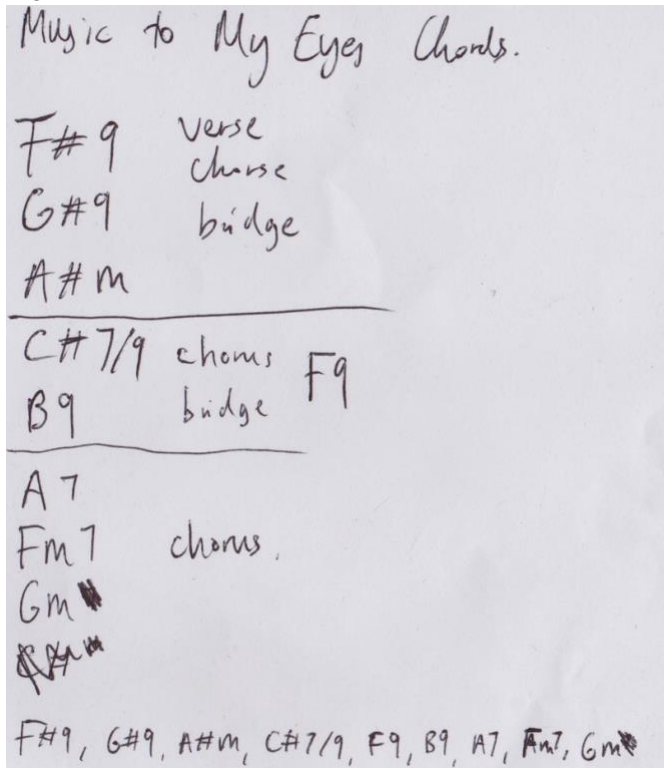 Music to My Eyes Chords.
F#9 verse
chorse
G#9 bridge
A#m
C#7/9 chorus F9
B9 bridge
A7
Fm7 chorus.
Gm
F#9, G#9, A#m, C#7/9, F9, B9, A7, Fm7, Gm